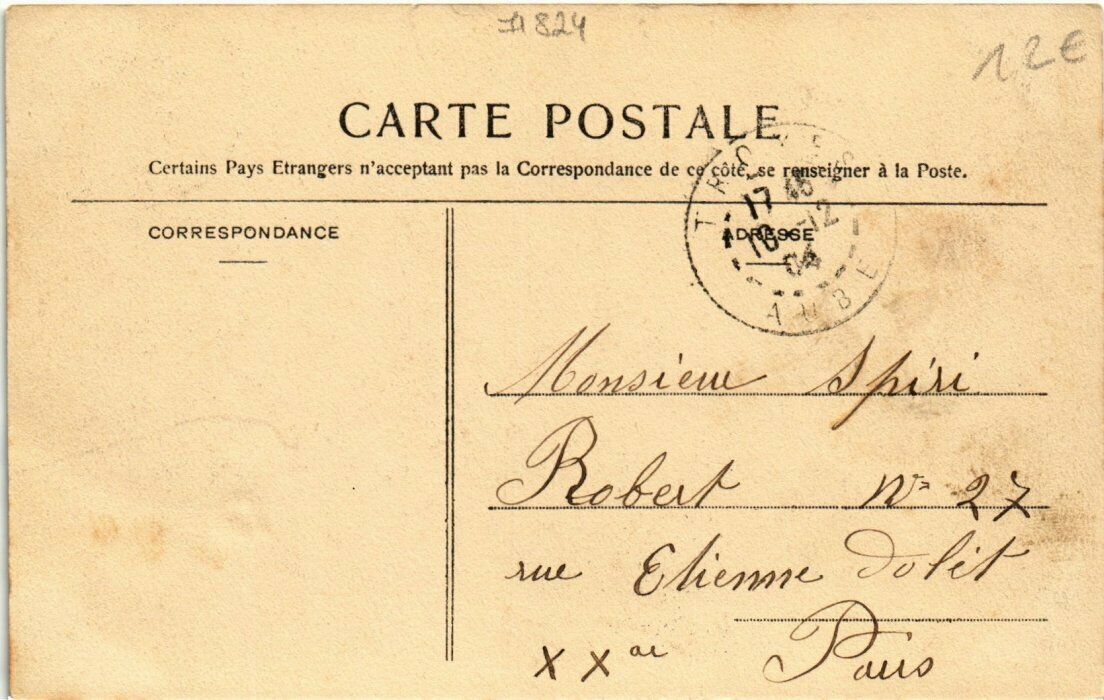 A824
12€
CARTE POSTALE
Certains Pays Etrangers n'acceptant pas la Correspondance de ce côté, se renseigner à la Poste.
CORRESPONDANCE
ADRESSE
TROYES
17 45
16-12
04
AUBE
Monsieur Spiri
Robert Nº 27
rue Etienne Dolet
XXar Paris